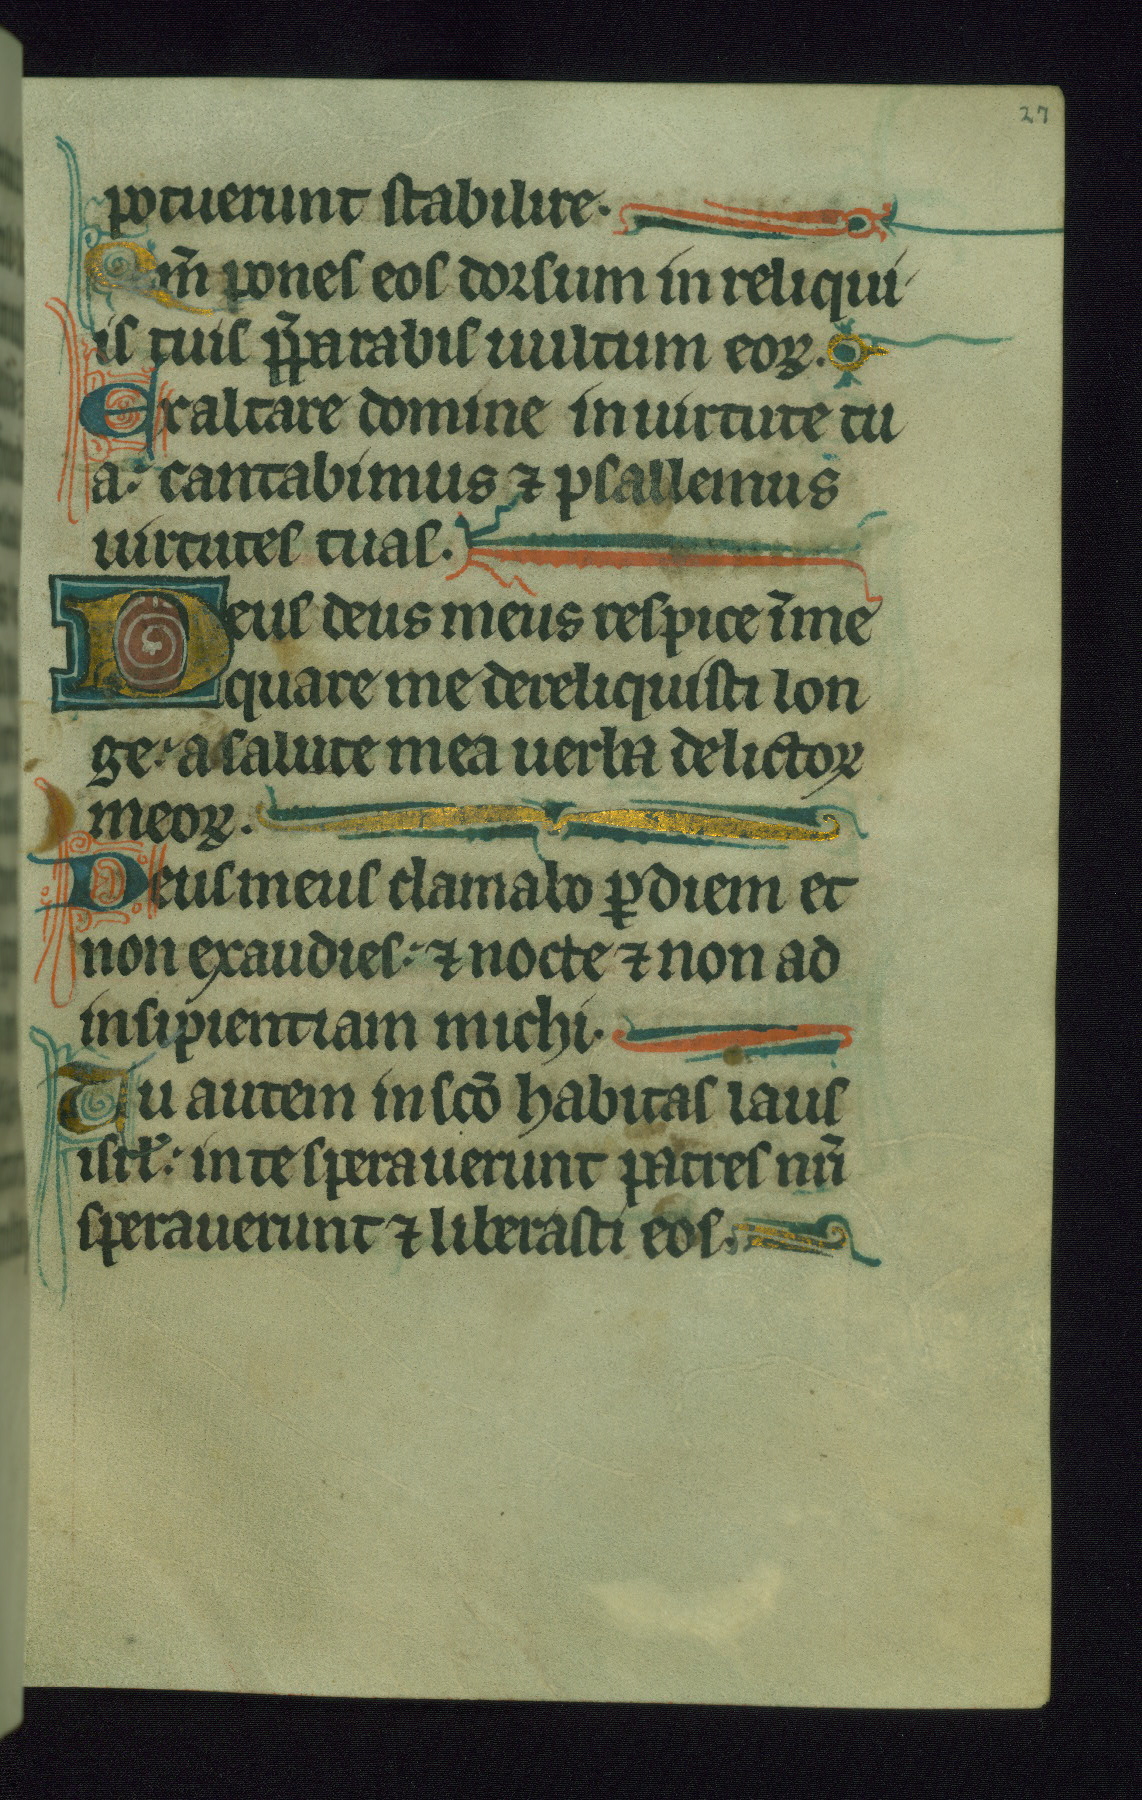 27
potuerunt stabilire.
Qm̄ pones eos dorsum in reliqui
is tuis p̄parabis uultum eoꝝ.
Exaltare domine in uirtute tu
a: cantabimus ⁊ psallemus
uirtutes tuas.
Deus deus meus respice ī me
quare me dereliquisti lon
ge: a salute mea uerba delictoꝝ
meoꝝ.
Deus meus clamabo ꝑ diem et
non exaudies: ⁊ nocte ⁊ non ad
insipientiam michi.
Tu autem in scō habitas laus
isrł: in te sperauerunt patres nr̄i
sperauerunt ⁊ liberasti eos.